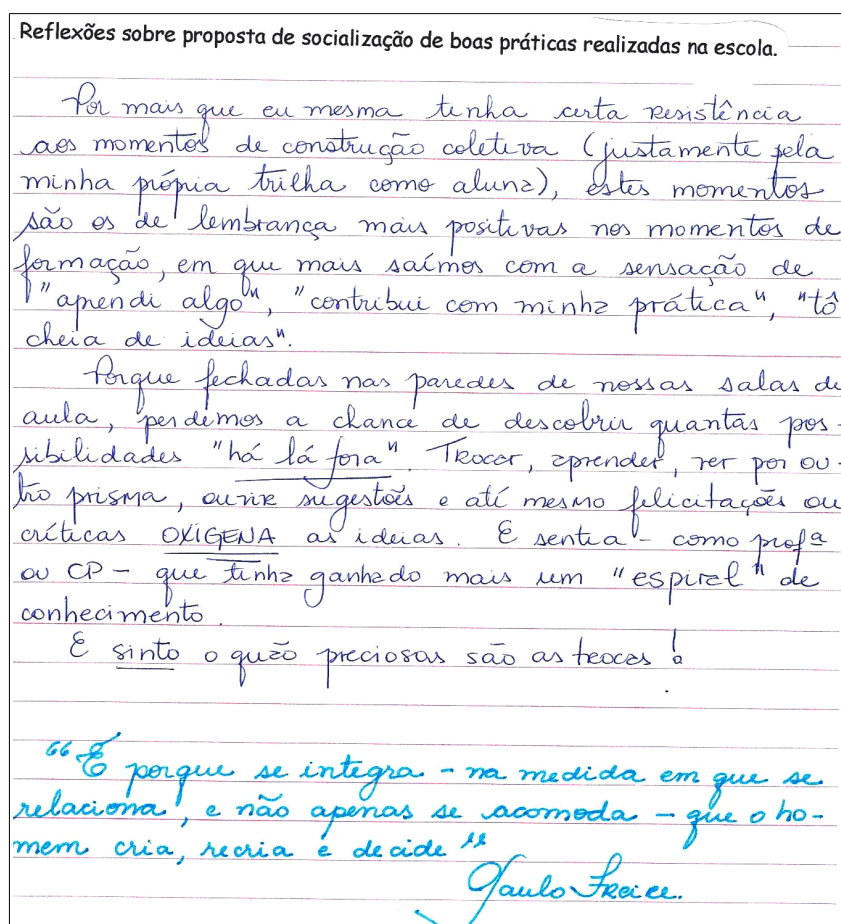 Reflexões sobre proposta de socialização de boas práticas realizadas na escola.
Por mais que eu mesma tenha certa resistência
aos momentos de construção coletiva (justamente pela
minha própria trilha como aluna), estes momentos
são os de lembrança mais positivas nos momentos de
formação, em que mais saímos com a sensação de
"aprendi algo", "contribui com minha prática", "tô
cheia de ideias".
Porque fechadas nas paredes de nossas salas de
aula, perdemos a chance de descobrir quantas pos-
sibilidades "há lá fora". Trocar, aprender, ver por ou-
tro prisma, ouvir sugestões e até mesmo felicitações ou
críticas OXIGENA as ideias. E sentia - como profª
ou CP - que tinha ganhado mais um "espiral" de
conhecimento.
E sinto o quão preciosas são as trocas!
"É porque se integra - na medida em que se
relaciona, e não apenas se acomoda - que o ho-
mem cria, recria e decide"
Paulo Freire.